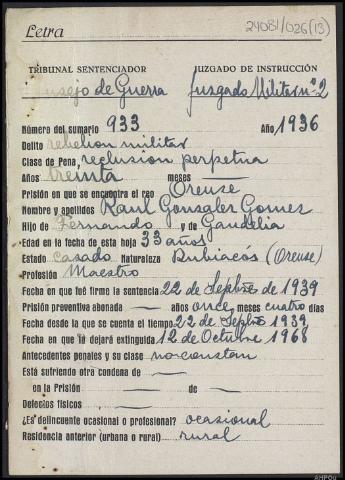 24081/026(13)
Letra
TRIBUNAL SENTENCIADOR JUZGADO DE INSTRUCCIÓN
Consejo de Guerra Juzgado Militar nº 2
Número del sumario 933 Año 1936
Delito rebelion militar
Clase de Pena, reclusion perpetua
Años treinta meses —
Prisión en que se encuentra el reo Orense
Nombre y apellidos Raul Gonzalez Gomez
Hijo de Fernando y de Gandelia
Edad en la fecha de esta hoja 33 años
Estado casado Naturaleza Rubiacós (Orense)
Profesión Maestro
Fecha en que fué firme la sentencia 22 de Sepbre de 1939
Prisión preventiva abonada — años once meses cuatro días
Fecha desde la que se cuenta el tiempo 22 de Sepbre 1939
Fecha en que la dejará extinguida 12 de Octubre 1968
Antecedentes penales y su clase no constan
Está sufriendo otra condena de —
en la Prisión — de —
Defectos físicos —
¿Es delincuente ocasional o profesional? ocasional
Residencia anterior (urbana o rural) rural
AHPOu